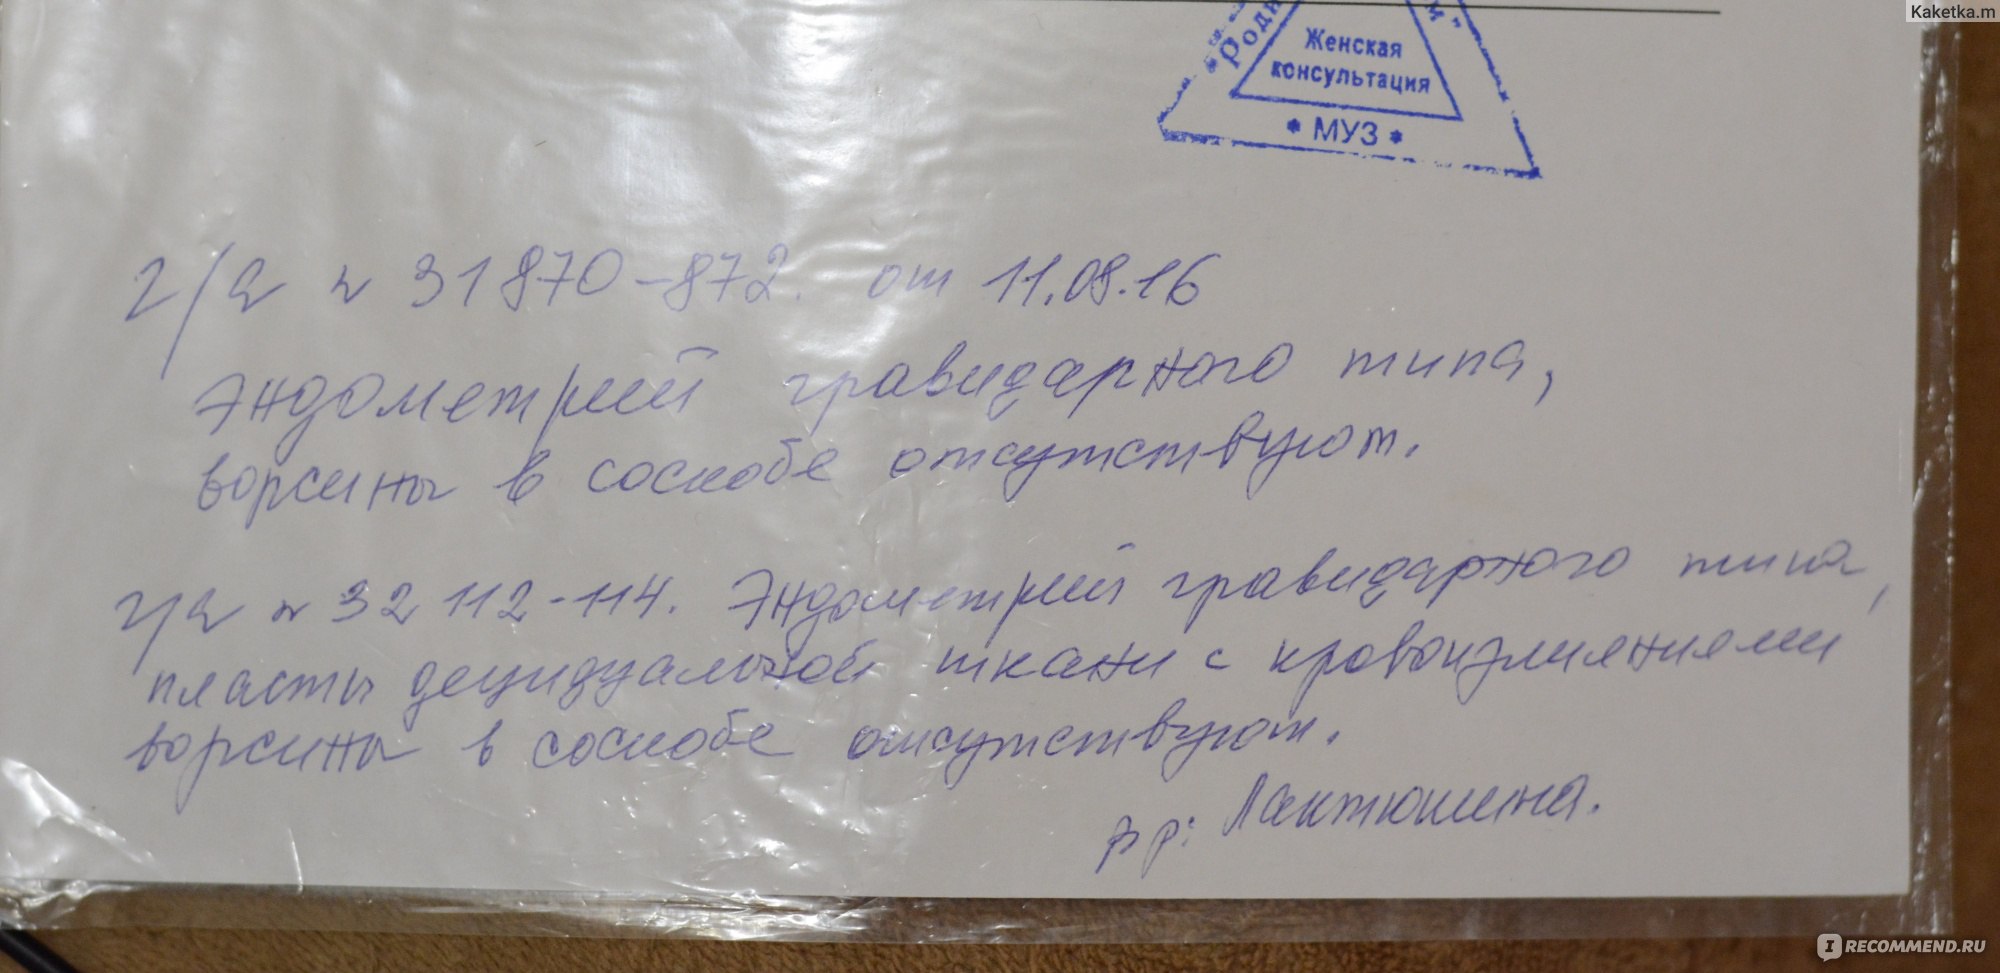 Kaketka.m
Женская
консультация
* МУЗ *
г/а № 31870-872. от 11.08.16
Эндометрий гравидарного типа,
ворсины в соскобе отсутствуют.
г/а № 32112-114. Эндометрий гравидарного типа,
пласты децидуальной ткани с кровоизлияниями
ворсины в соскобе отсутствуют.
вр: Лактюшина.
RECOMMEND.RU